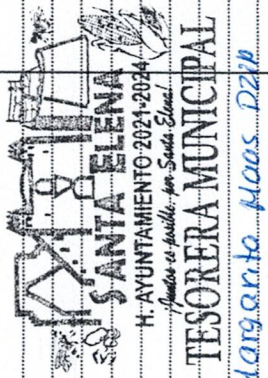 SANTA ELENA
H. AYUNTAMIENTO 2021-2024
¡Juntos es posible, por Santa Elena!
TESORERA MUNICIPAL
Margarita Maas Dzip